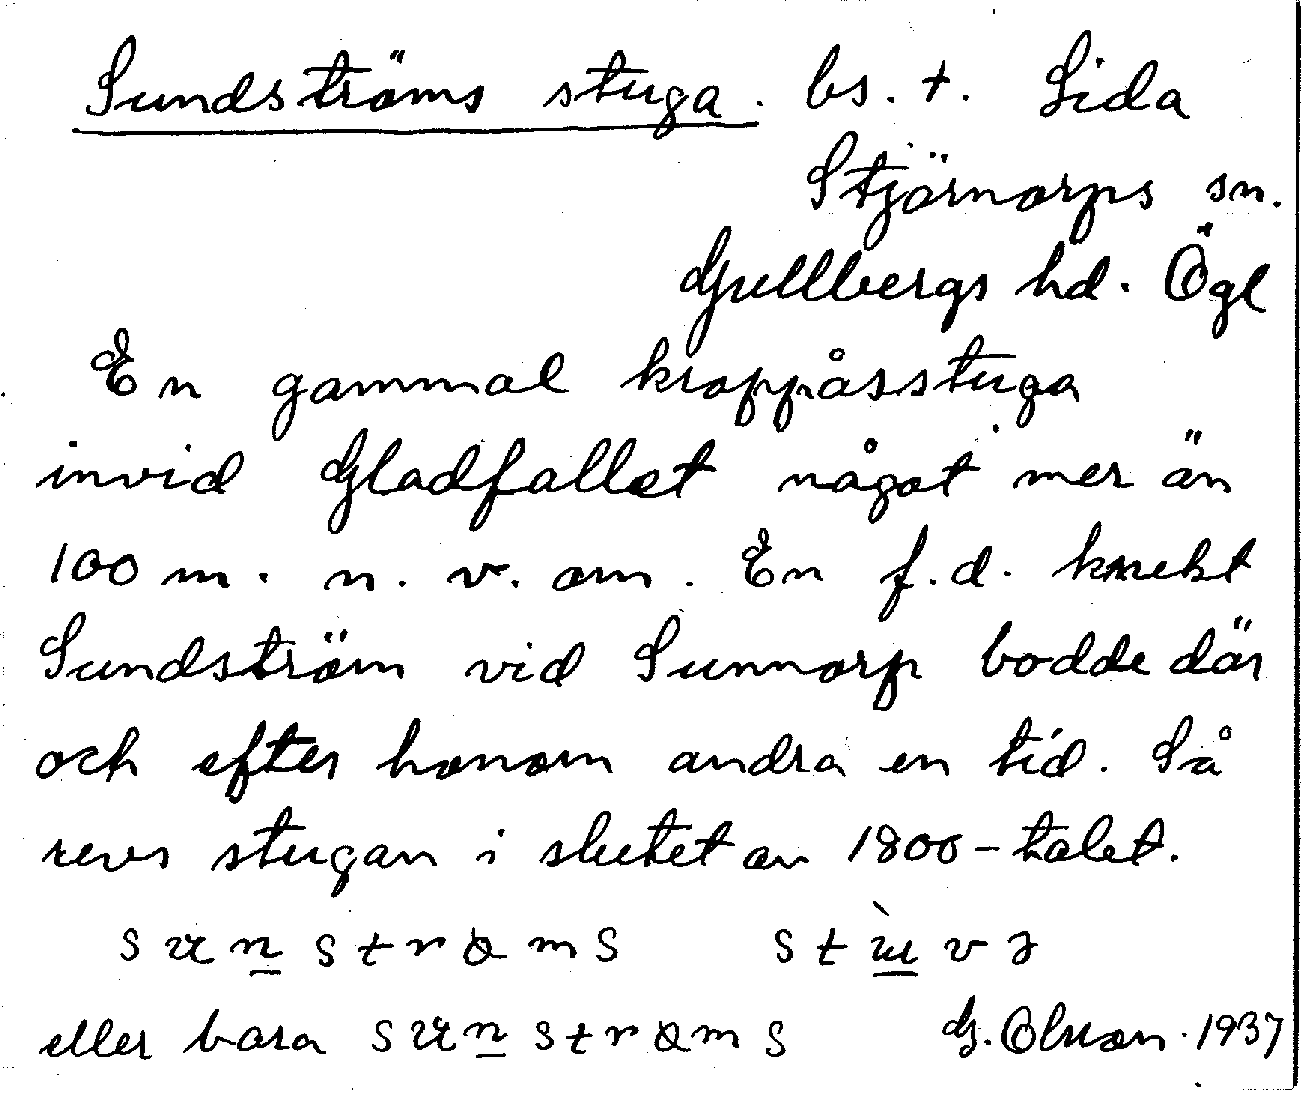 Sundströms stuga. bs. †. Lida
Stjärnorps sn.
Gullbergs hd. Ögl
En gammal kroppåsstuga
invid Gladfallet något mer än
100 m. n. v. om. En f.d. knekt
Sundström vid Sunnorp bodde där
och efter honom andra en tid. Så
revs stugan i slutet av 1800-talet.
eller bara
G. Olson. 1937